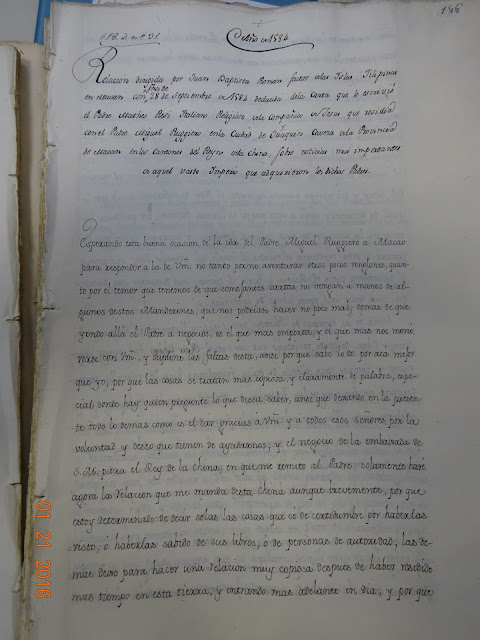 146
Año de 1584
Relacion dirigida por Juan Baptista Roman factor de las Islas Filipinas
en Macan con fha de 28 de Septiembre de 1584 deducida de la Carta que le escrivió
el Padre Matheo Resi Italiano Religioso de la compañia de Jesus que residia
con el Padre Miguel Ruggiero en la Ciudad de de la Provincia
de Macan en los Cantones del Reyno de la China, sobre noticias mui importantes
de aquel vasto Imperio que adquirieron los dichos Padres.
Esperando esta buena ocasion de la ida del Padre Miguel Ruggiero a Macao
para responder a la de Vm. no tanto por no aventurar otros pocos renglones, quan-
to por el temor que tenemos de que semejantes cartas no vengan á manos de al-
gunos destos Mandarines, que nos podrian hacer no poco mal, demas de que
yendo allá el Padre a negocios, es el que mas importa, y el que mas nos
con Vm., y las faltas desta, ansi por que sabe lo de por acá mejor
que yo, por que las cosas se tratan mas copiosa, y claramente de palabra, espe-
cial donde hay quien pregunte lo que desea saber, ansi que dexando en la presen-
te todo lo demas como es el dar gracias a Vm. y a todos esos Señores por la
voluntad y deseo que tienen de ayudarnos, y el negocio de la embaxada de
S. M. para el Rey de la China, en que me remito al Padre: solamente haré
agora la relacion que me manda desta China aunque brevemente, por que
estoy determinado de decir solas las cosas que sé de certidumbre por haberlas
visto, ó haberlas sabido de sus libros, o de personas de autoridad; las de-
mas dexo para hacer una relacion muy copiosa despues de haber residido
mas tiempo en esta tierra, y entrando mas adelante en ella, y por que
01 21 2016